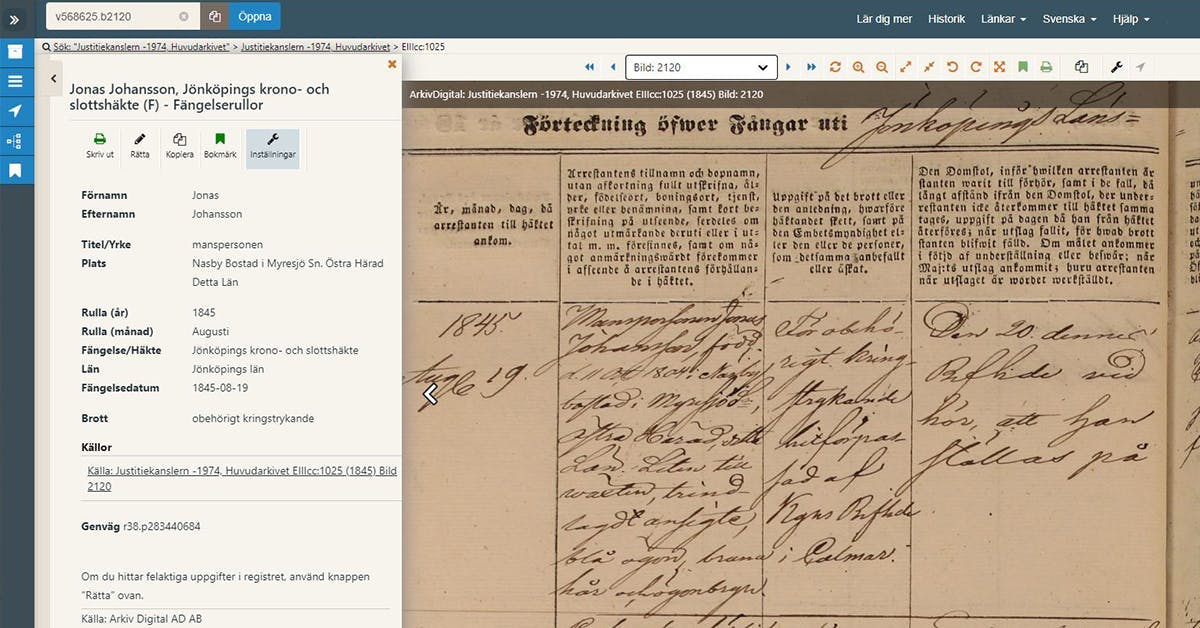 v568625.b2120
Öppna
Lär dig mer Historik Länkar Svenska Hjälp
Sök: "Justitiekanslern -1974, Huvudarkivet" > Justitiekanslern -1974, Huvudarkivet > EIIIcc:1025
Jonas Johansson, Jönköpings krono- och
slottshäkte (F) - Fängelserullor
Skriv ut Rätta Kopiera Bokmärk Inställningar
Förnamn Jonas
Efternamn Johansson
Titel/Yrke manspersonen
Plats Nasby Bostad i Myresjö Sn. Östra Härad
Detta Län
Rulla (år) 1845
Rulla (månad) Augusti
Fängelse/Häkte Jönköpings krono- och slottshäkte
Län Jönköpings län
Fängelsedatum 1845-08-19
Brott obehörigt kringstrykande
Källor
Källa: Justitiekanslern -1974, Huvudarkivet EIIIcc:1025 (1845) Bild
2120
Genväg r38.p283440684
Om du hittar felaktiga uppgifter i registret, använd knappen
"Rätta" ovan.
Källa: Arkiv Digital AD AB
Bild: 2120
ArkivDigital: Justitiekanslern -1974, Huvudarkivet EIIIcc:1025 (1845) Bild: 2120
Förteckning öfwer Fångar uti Jönköpings Läns-
År, månad, dag, då
arrestanten till häktet
ankom.
Arrestantens tillnamn och dopnamn,
utan afkortning fullt utskrifna, ål-
der, födelseort, boningsort, tjenst,
yrke eller benämning, samt kort be-
skrifning på utseende, serdeles om
något utmärkande deruti eller i ut-
tal m. m. förefinnes, samt om nå-
got anmärkningswärdt förekommer
i afseende å arrestantens förhållan-
de i häktet.
Uppgift på det brott eller
den anledning, hwarföre
häktandet skett, samt på
den Embetsmyndighet el-
ler den eller de personer,
som detsamma anbefallt
eller äskat.
Den Domstol, inför hwilken arrestanten är
stånten warit till förhör, samt i de fall, då
långt afstånd ifrån den Domstol, der under-
restanten icke återkommer till häktet samma
tages, uppgift på dagen då han från häktet
återföres; när utslag fallit, för hwad brott
stanten blifwit fälld. Om målet ankommer
i följd af underställning eller beswär; när
Maj:ts utslag ankommit; huru arrestanten
när utslaget är wordet werkställdt.
1845.
Aug 19.
Manspersonen Jonas
Johansson, född
d. 11 Oct 1804 i Nasby
bostad i Myresjö Sn,
östra Härad, detta
Län. Liten till
waxten, trind-
lagdt ansigte,
blå ögon, bruna
hår och ögonbryn.
För obehö-
rigt kring-
strykande
hitförpas-
sad af
Kgns Bfhde
i Calmar.
Den 20 dennes
Bfhde vid
hör, att han
ställas på